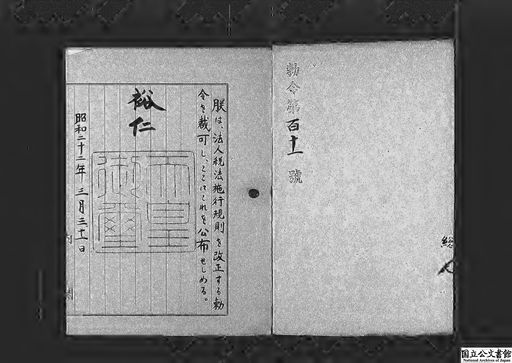 勅令第百十一號
朕は、法人税法施行規則を改正する勅
令を裁可し、ここにこれを公布せしめる。
裕仁
天皇御璽
昭和二十二年三月三十一日
内閣
国立公文書館
National Archives of Japan